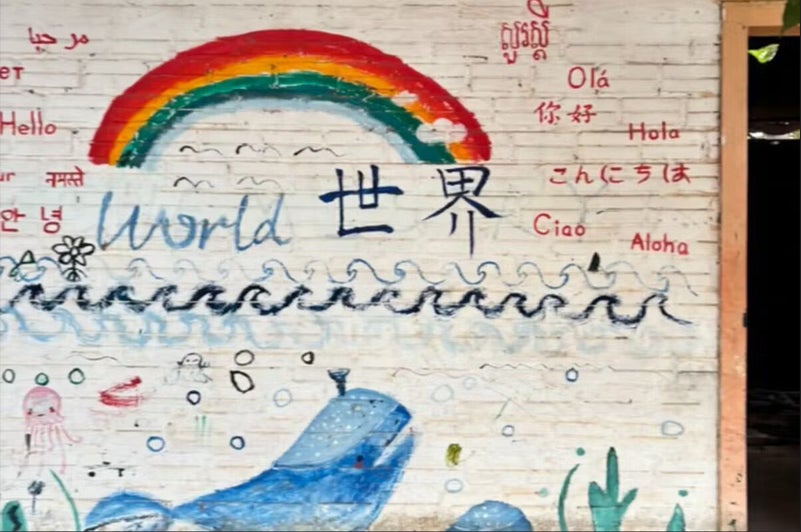 مرحبا
សួរស្តី
Olá
Hello
你好
Hola
नमस्ते
こんにちは
안녕
World 世界
Ciao
Aloha